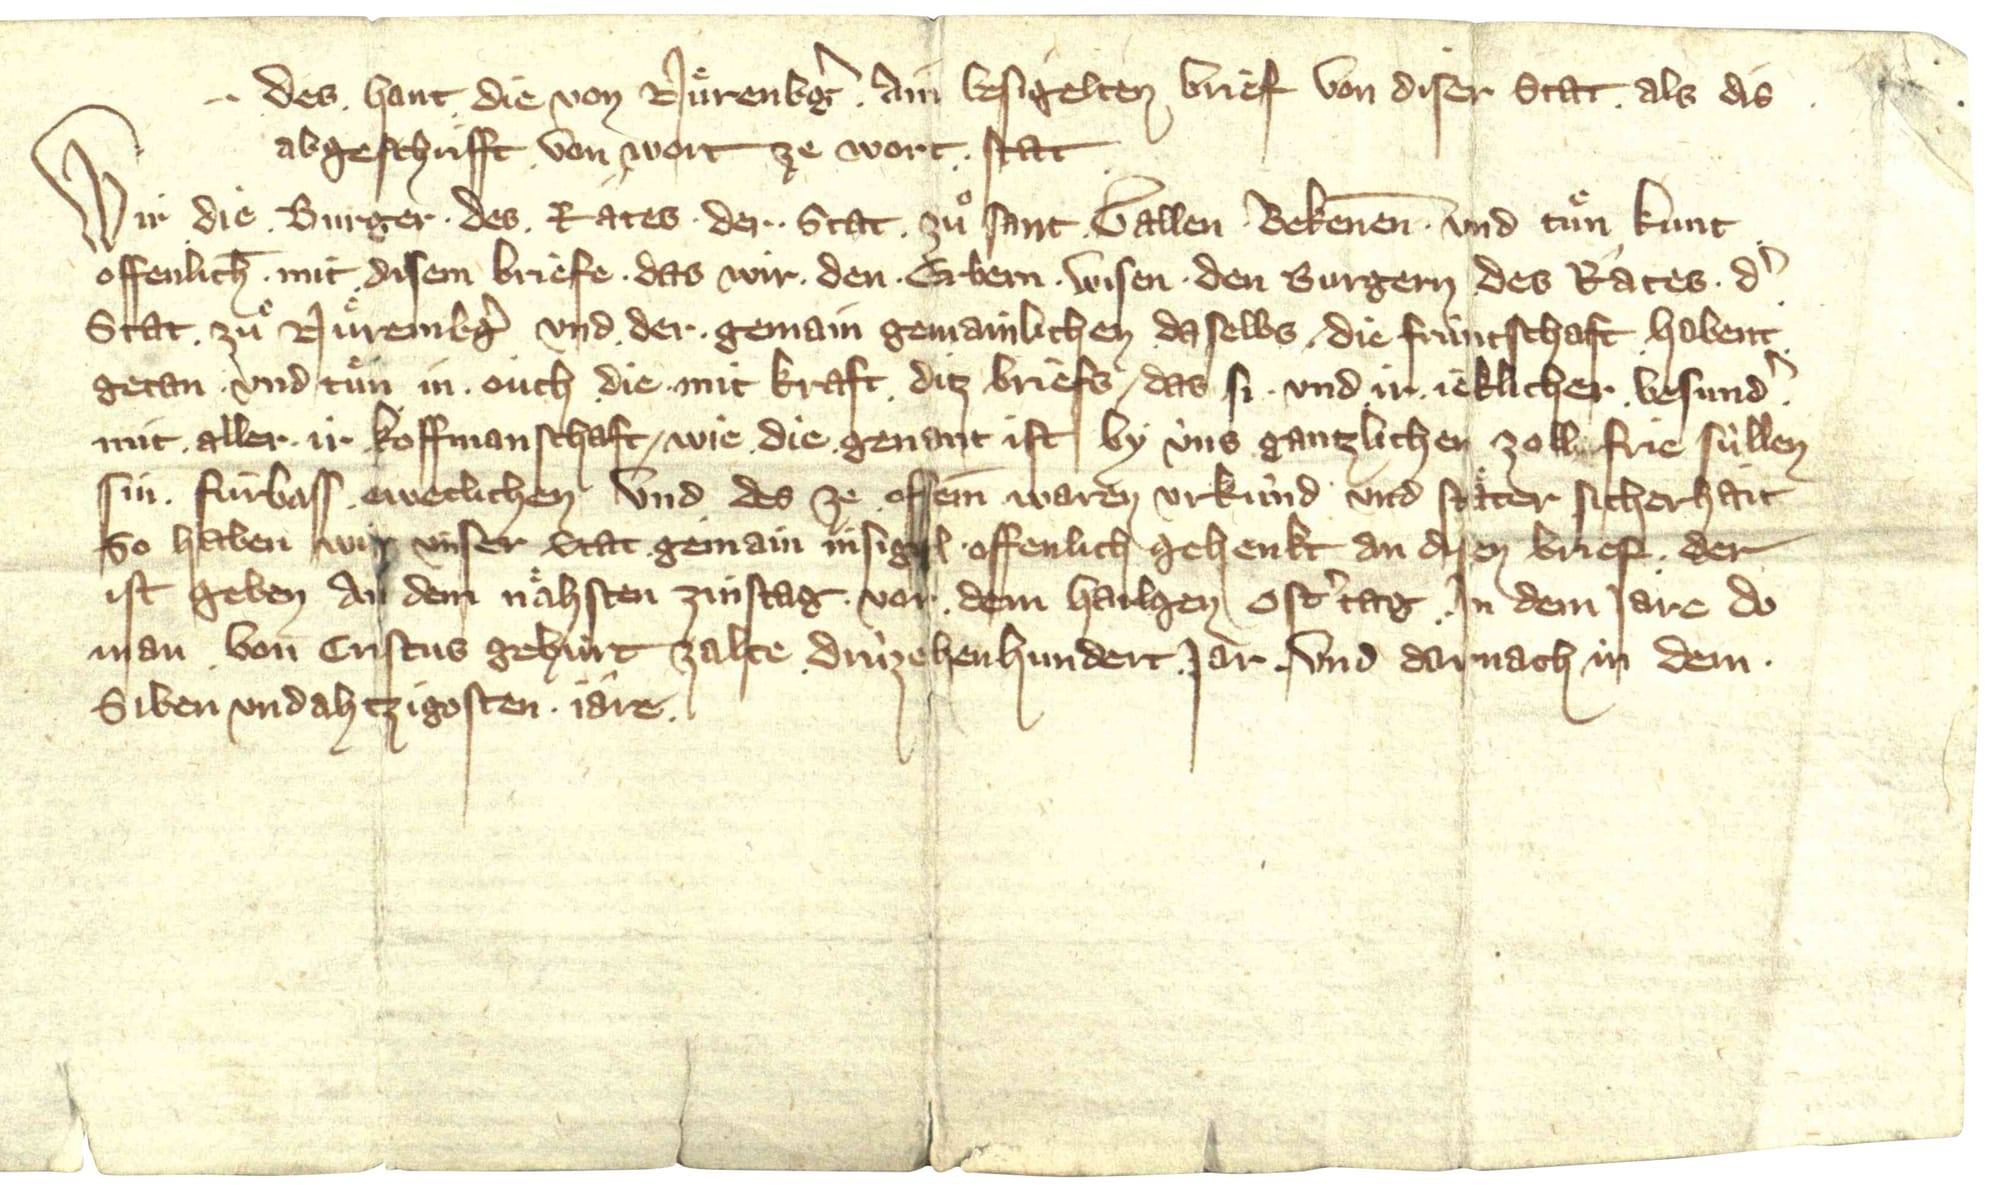 des. hant. die von Nuͤrenbg̾. Ain besigelten brief von diser Stat. als dis
abgeschrifft von wort ze wort. stat
Wir die. Burger. des. Rates. der. Stat. zuͦ sant. Gallen. Bekenen̄. vnd tuͤn kunt
offenlich̄. mit disem briefe. das wir. den. Erbern. wisen. den Burgern des Rates. d̾
Stat. zuͦ Nuͤrembg̾ vnd der. gemain gemainlichen daselbs / die früntschaft habent
getan. vnd tuͤn in. ouch die. mit kraft. ditz briefs / das si. vnd ir. ieklicher. besund̾.
mit. aller. ir koffmanschaft / wie die genant ist by üns gantzlichen zoll frie süllen
sin. fürbass. eweclichen vnd des ze offem̄ waren vrkünd vnd staͤter sicherhait
So haben wir vnser Stat gemain insigel. offenlich gehenkt an disen brief. der
ist geben An dem naͤhsten zinstag. vor. dem hailgen ost̾tag. In dem Jare do
man von Cristus gebürt zalte drüzehenhundert Jar. Vnd darnach in dem.
Siben vndahtzigosten. iare.